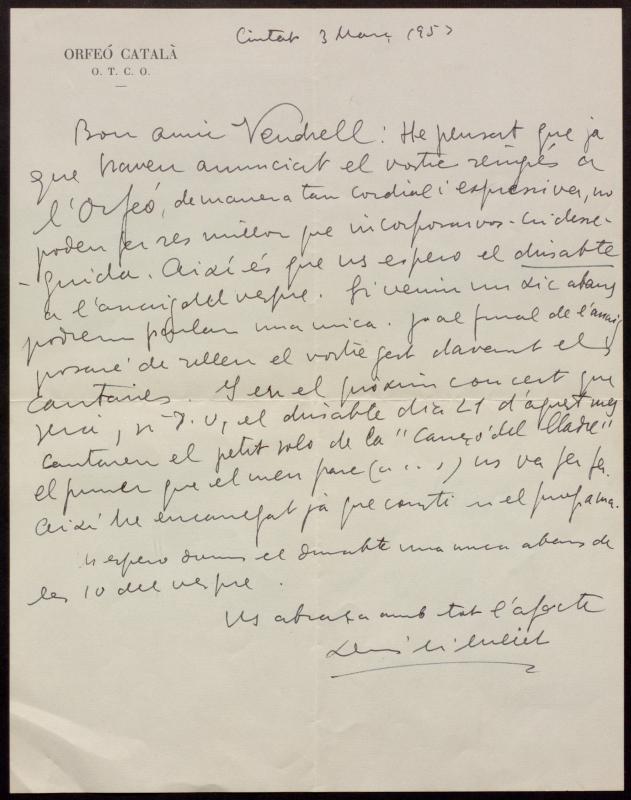 ORFEÓ CATALÀ
O. T. C. O.
Ciutat 3 Març 1953
Bon amic Vendrell: He pensat que ja
que havem anunciat el vostre reingrés a
l'Orfeó, de manera tan cordial i expressiva, no
podem fer res millor que incorporar-vos-hi desse-
guida. Així és que us espero el dissabte
a l'assaig del vespre. Si veniu un xic abans
podrem parlar una mica. Ja al final de l'assaig
posaré de relleu el vostre gest davant els
cantaires. I en el pròxim concert que
serà, si D. v, el dissabte dia 21 d'aquest mes
cantareu el petit solo de la "Cançó del lladre"
el primer que el meu pare (a. c. s.) us va fer fer.
Així he encarregat ja que consti en el programa.
Us espero doncs el dissabte una mica abans de
les 10 del vespre.
Us abraça amb tot l'afecte
Lluís Mª Millet